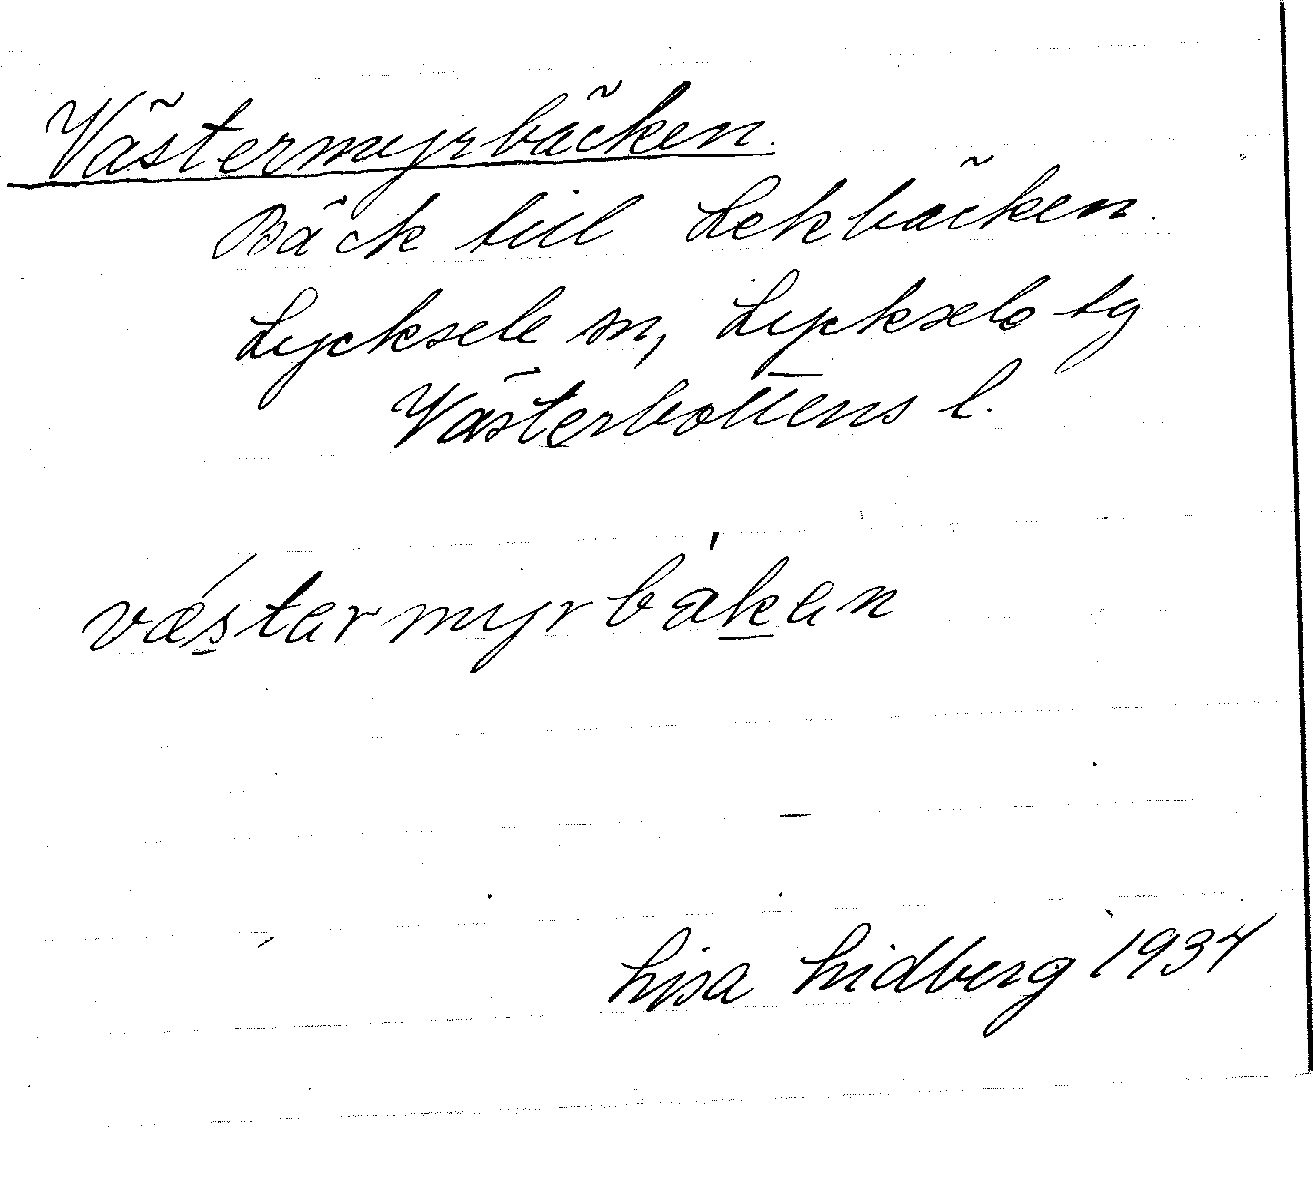 Västermyrbäcken.
Bäck till Lekbäcken.
Lycksele sn, Lycksele tg
Västerbottens l.
væstarmyrbäkan
Lisa Lidberg 1934